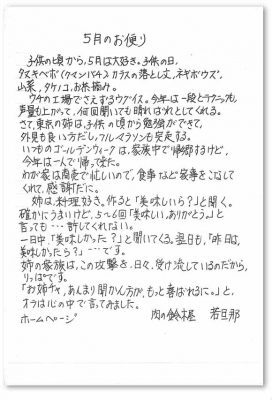 5月のお便り
子供の頃から、5月は大好き。子供の日、
タスキベボ(クマンバチ)、カラスの落とし文、ネギボウズ、
山菜、タケノコ、お茶摘み。
ウチの工場でさえずるウグイス。今年は一段とテクニックも、
声量も上がって、何回聞いても晴ればれとしてくれる。
さて、東京の姉は、子供の頃から勉強ができて、
外見も良い方だし、フルマラソンも完走する。
いつものゴールデンウィークは、家族中で帰郷するけど、
今年は一人で帰って来た。
わが家は商売で忙しいので、食事など家事をこなして
くれて、感謝だに。
姉は、料理好き。作ると「美味しいら?」と聞く。
確かにうまいけど、5~6回「美味しい、ありがとう。」と
言っても…許してくれない。
一日中、「美味しかった?」と聞いてくる。翌日も、「昨日は、
美味しかたら?」…です。
姉の家族は、この攻撃を、日々、受け流しているのだから、
りっぱです。
「お姉チャ、あんまり聞かん方が、もっと喜ばれるに。」と、
オラは心の中で言ってみました。
ホームページ 肉の鈴木屋 若旦那